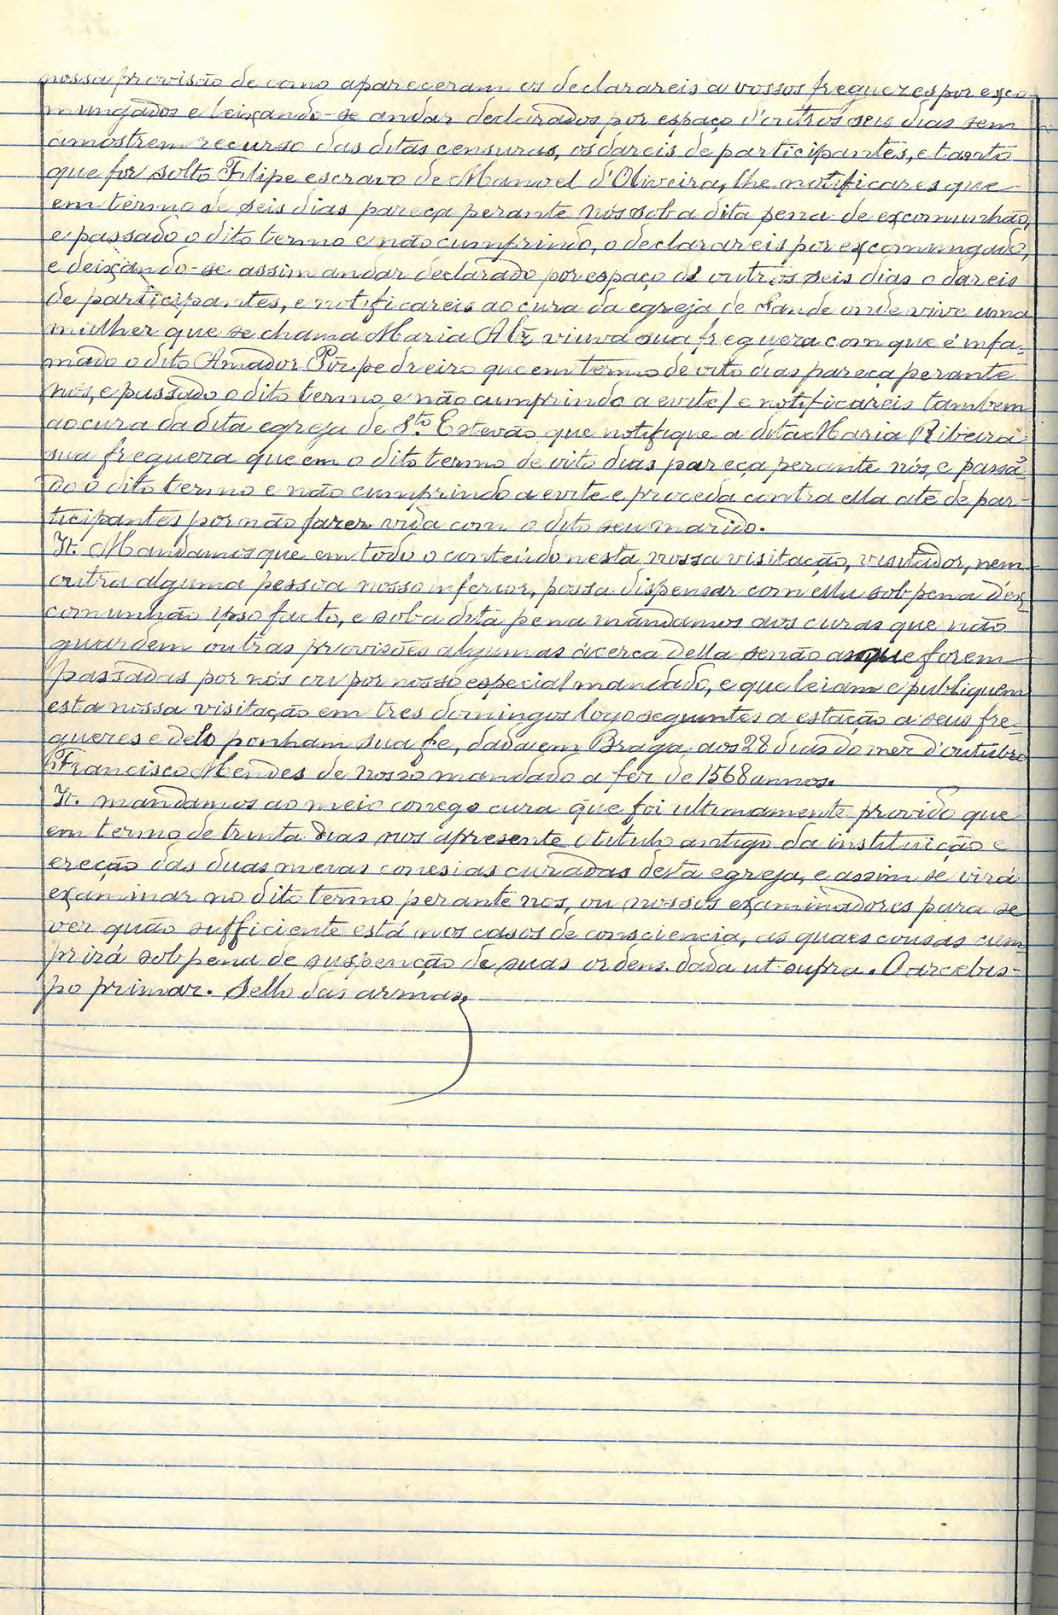 nossa provisão de como apareceram os declarareis a vossos freguezes por exco-
mungados e leixando-se andar declarados por espaço d'outros seis dias sem
amostrem recurso das ditas censuras, os dareis de participantes, e tanto
que for solto Filipe escravo de Manoel d'Oliveira, lhe notificares que
em termo de seis dias pareça perante nós sob a dita pena de excomunhão,
e passado o dito termo e não cumprindo, o declarareis por excomungado,
e deixando-se assim andar declarado por espaço de outros seis dias o dareis
de participantes, e notificareis ao cura da egreja de Sande onde vive uma
mulher que se chama Maria Alz viuva sua fregueza com que é infa-
mado o dito Amador Piz pedreiro que em termo de oito dias pareça perante
nós, e passado o dito termo e não cumprindo a evite / e notificareis tambem
ao cura da dita egreja de S.to Estevão que notifique a dita Maria Ribeira
sua fregueza que em o dito termo de oito dias pareça perante nós, e passa-
do o dito termo e não cumprindo a evite e proceda contra ella até de par-
ticipantes por não fazer vida com o dito seu marido.
It. Mandamos que em todo o conteúdo nesta nossa visitação, visitador, nem
outra alguma pessoa nosso inferior, possa dispensar com ella sob pena d'ex-
comunhão ipso facto, e sob a dita pena mandamos aos curas que não
guardem outras provisões algumas ácerca della senão as que forem
passadas por nós ou por nosso especial mandado, e que leiam e publiquem
esta nossa visitação em tres domingos logo seguintes a estação a seus fre-
guezes e delo ponham sua fé, dada em Braga aos 28 dias do mez d'outubro
Francisco Mendes de nosso mandado a fez de 1568 annos.
It. mandamos ao meio conego cura que foi ultimamente provido que
em termo de trinta dias nos apresente o titulo antigo da instituição e
ereção das duas meias conesias curadas desta egreja, e assim se virá
examinar no dito termo perante nós, ou nossos examinadores para se
ver quão sufficiente está nos casos de consciencia, as quaes cousas cum-
prirá sob pena de suspenção de suas ordens. dada ut supra. O arcebis-
po primaz. Sello das armas.